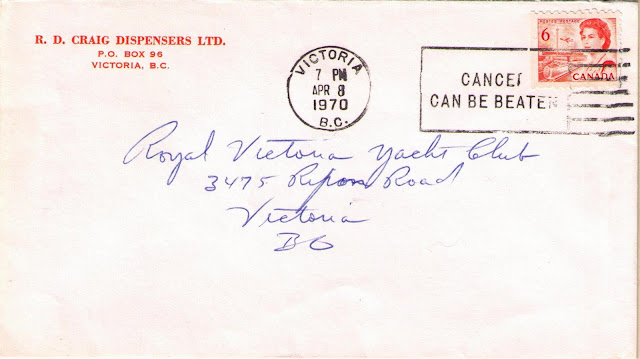 R. D. CRAIG DISPENSERS LTD.
P.O. BOX 96
VICTORIA, B.C.
VICTORIA
7 PM
APR 8
1970
B.C.
CANCER
CAN BE BEATEN
POSTES POSTAGE
6
CANADA
Royal Victoria Yacht Club
3475 Ripon Road
Victoria
BC